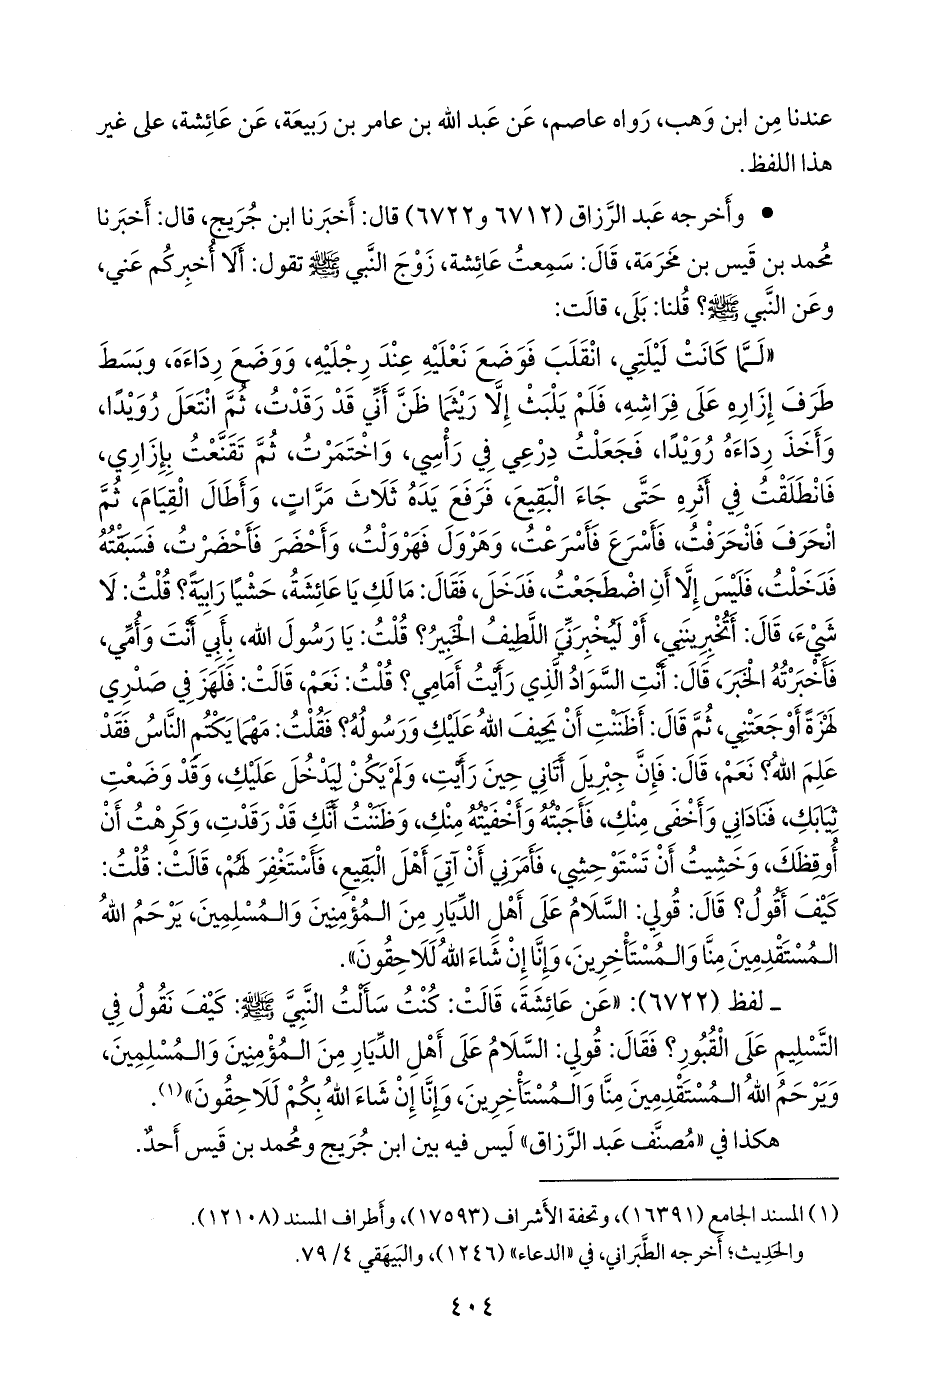 عندنا مِن ابن وَهب، رَواه عاصم، عَن عَبد الله بن عامر بن رَبيعَة، عَن عَائِشة، على غير
هذا اللفظ.
• وأَخرجه عَبد الرَّزاق (٦٧١٢ و٦٧٢٢) قال: أَخبَرنا ابن جُرَيج، قال: أَخبَرنا
مُحمد بن قَيس بن مَخرَمة، قَالَ: سَمِعتُ عَائِشة، زَوْجَ النَّبي ﷺ تقول: أَلَا أُخبِركُم عَني،
وعَن النَّبي ﷺ؟ قُلنا: بَلَى، قالَت:
«لَـمَّا كَانَتْ لَيْلَتِي، انْقَلَبَ فَوَضَعَ نَعْلَيْهِ عِنْدَ رِجْلَيْهِ، وَوَضَعَ رِدَاءَهَ، وبَسَطَ
طَرَفَ إِزَارِهِ عَلَى فِرَاشِهِ، فَلَمْ يَلْبَثْ إِلَّا رَيْثَمَا ظَنَّ أَنِّي قَدْ رَقَدْتُ، ثُمَّ انْتَعَلَ رُوَيْدًا،
وَأَخَذَ رِدَاءَهُ رُوَيْدًا، فَجَعَلْتُ دِرْعِي فِي رَأْسِي، وَاخْتَمَرْتُ، ثُمَّ تَقَنَّعْتُ بِإِزَارِي،
فَانْطَلَقْتُ فِي أَثَرِهِ حَتَّى جَاءَ الْبَقِيعَ، فَرَفَعَ يَدَهُ ثَلَاثَ مَرَّاتٍ، وَأَطَالَ الْقِيَامَ، ثُمَّ
انْحَرَفَ فَانْحَرَفْتُ، فَأَسْرَعَ فَأَسْرَعْتُ، وَهَرْوَلَ فَهَرْوَلْتُ، وَأَحْضَرَ فَأَحْضَرْتُ، فَسَبَقْتُهُ
فَدَخَلْتُ، فَلَيْسَ إِلَّا أَنِ اضْطَجَعْتُ، فَدَخَلَ، فَقَالَ: مَا لَكِ يَا عَائِشَةُ، حَشْيَا رَابِيَةً؟ قُلْتُ: لَا
شَيْءَ، قَالَ: أَتُخْبِرِينَنِي، أَوْ لَيُخْبِرَنِّي اللَّطِيفُ الْخَبِيرُ؟ قُلْتُ: يَا رَسُولَ الله، بِأَبِي أَنْتَ وَأُمِّي،
فَأَخْبَرْتُهُ الْخَبَرَ، قَالَ: أَنْتِ السَّوَادُ الَّذِي رَأَيْتُ أَمَامِي؟ قُلْتُ: نَعَمْ، قَالَتْ: فَلَهَزَ فِي صَدْرِي
لَهْزَةً أَوْجَعَتْنِي، ثُمَّ قَالَ: أَظَنَنْتِ أَنْ يَحِيفَ اللهُ عَلَيْكِ وَرَسُولُهُ؟ فَقُلْتُ: مَهْمَا يَكْتُمِ النَّاسُ فَقَدْ
عَلِمَ اللهُ؟ نَعَمْ، قَالَ: فَإِنَّ جِبْرِيلَ أَتَانِي حِينَ رَأَيْتِ، وَلَمْ يَكُنْ لِيَدْخُلَ عَلَيْكِ، وَقَدْ وَضَعْتِ
ثِيَابَكِ، فَنَادَانِي وَأَخْفَى مِنْكِ، فَأَجَبْتُهُ وَأَخْفَيْتُهُ مِنْكِ، وَظَنَنْتُ أَنَّكِ قَدْ رَقَدْتِ، وَكَرِهْتُ أَنْ
أُوقِظَكَ، وَخَشِيتُ أَنْ تَسْتَوْحِشِي، فَأَمَرَنِي أَنْ آتِيَ أَهْلَ الْبَقِيعِ، فَأَسْتَغْفِرَ لَهُمْ، قَالَتْ: قُلْتُ:
كَيْفَ أَقُولُ؟ قَالَ: قُولِي: السَّلَامُ عَلَى أَهْلِ الدِّيَارِ مِنَ الـمُؤْمِنِينَ وَالـمُسْلِمِينَ، يَرْحَمُ اللهُ
الـمُسْتَقْدِمِينَ مِنَّا وَالـمُسْتَأْخِرِينَ، وَإِنَّا إِنْ شَاءَ اللهُ لَلَاحِقُونَ».
ـ لفظ (٦٧٢٢): «عَن عَائِشَةَ، قَالَتْ: كُنْتُ سَأَلْتُ النَّبِيَّ ﷺ: كَيْفَ نَقُولُ فِي
التَّسْلِيمِ عَلَى الْقُبُورِ؟ فَقَالَ: قُولِي: السَّلَامُ عَلَى أَهْلِ الدِّيَارِ مِنَ الـمُؤْمِنِينَ وَالـمُسْلِمِينَ،
وَيَرْحَمُ اللهُ الـمُسْتَقْدِمِينَ مِنَّا وَالـمُسْتَأْخِرِينَ، وَإِنَّا إِنْ شَاءَ اللهُ بِكُمْ لَلَاحِقُونَ»(١).
هكذا في «مُصنَّف عَبد الرَّزاق» لَيس فيه بين ابن جُرَيج ومُحمد بن قَيس أَحدٌ.
(١) المسند الجامع (١٦٣٩١)، وتحفة الأَشراف (١٧٥٩٣)، وأَطراف المسند (١٢١٠٨).
والحَدِيث؛ أَخرجه الطَّبَراني، في «الدعاء» (١٢٤٦)، والبَيهَقي ٤/ ٧٩.
٤٠٤